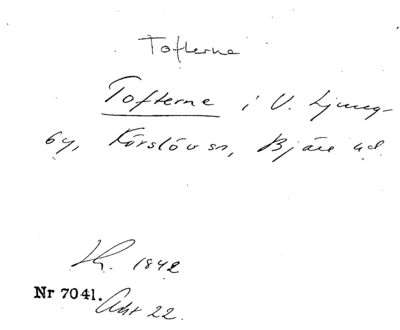 Tofterna
Tofterne i V. Ljung-
by, Förslöv sn, Bjäre hd.
1842
Nr 7041.
Akt 22.